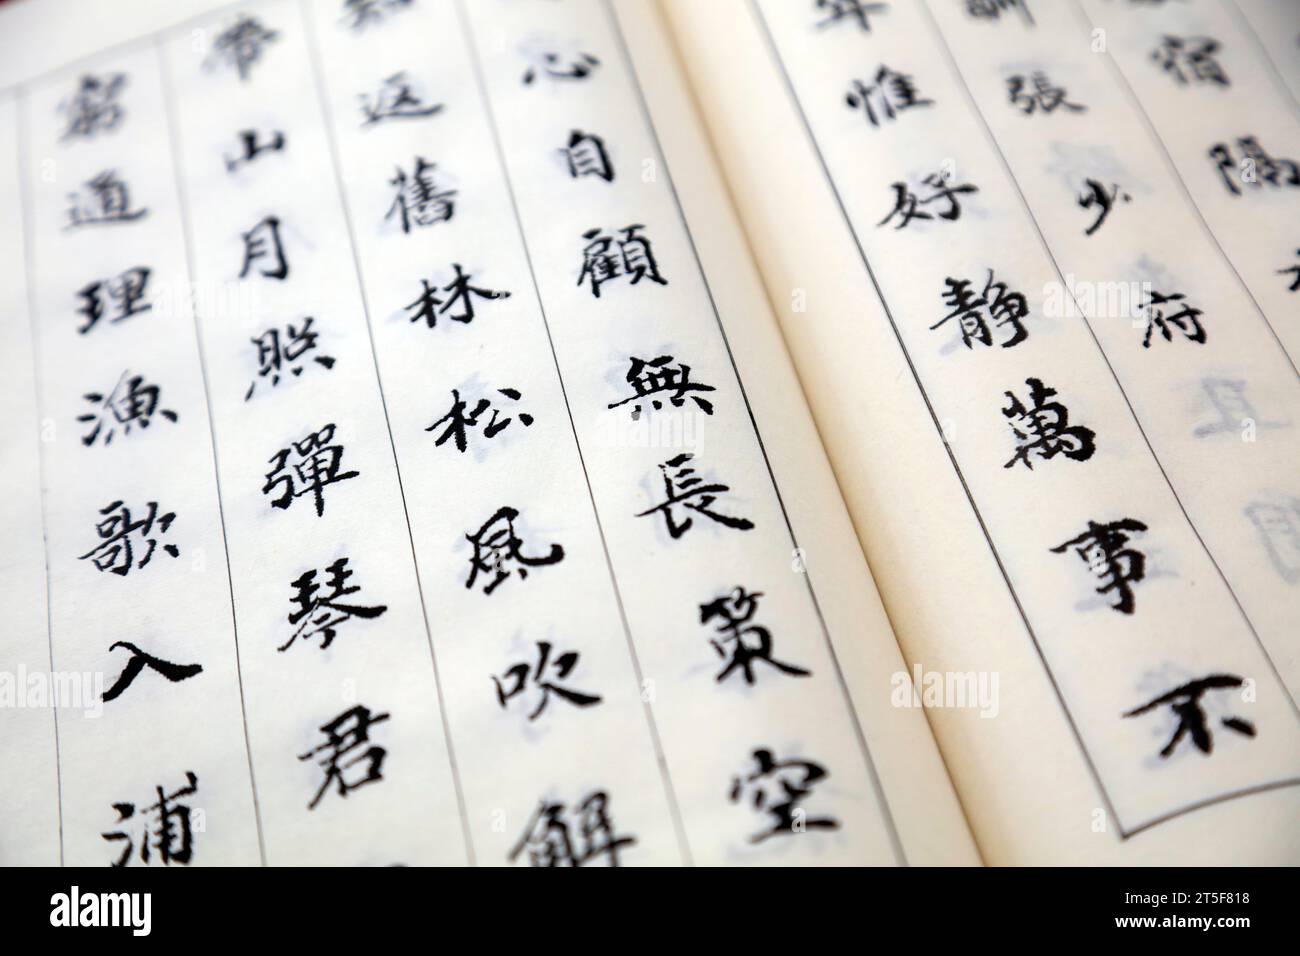 宿隔
張少府
年惟好靜萬事不
心自顧無長策空
知返舊林松風吹解
帶山月照彈琴君
窮通理漁歌入浦
alamy
Image ID: 2T5F818
www.alamy.com